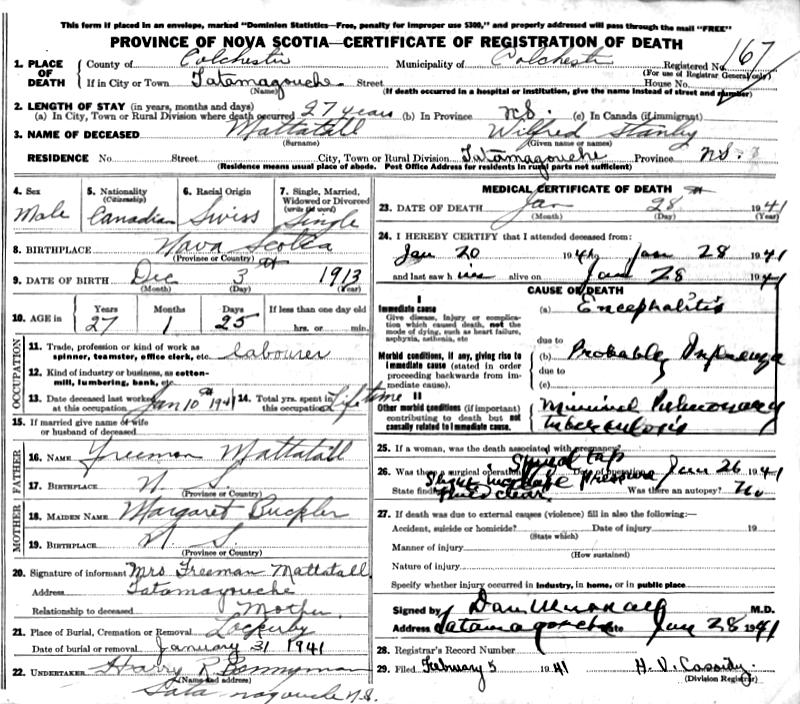 This form if placed in an envelope, marked "Dominion Statistics—Free, penalty for improper use $300," and properly addressed will pass through the mail "FREE"
PROVINCE OF NOVA SCOTIA—CERTIFICATE OF REGISTRATION OF DEATH
1. PLACE OF DEATH County of Colchester Municipality of Colchester Registered No. 167
(For use of Registrar General only)
If in City or Town Tatamagouche Street House No.
(Name) (If death occurred in a hospital or institution, give the name instead of street and number)
2. LENGTH OF STAY (in years, months and days)
(a) In City, Town or Rural Division where death occurred 27 years (b) In Province N.S. (c) In Canada (if immigrant)
3. NAME OF DECEASED Mattatall Wilfred Stanley
(Surname) (Given name or names)
RESIDENCE No. Street City, Town or Rural Division Tatamagouche Province N.S.
(Residence means usual place of abode. Post Office Address for residents in rural parts not sufficient)
4. Sex Male
5. Nationality (Citizenship) Canadian
6. Racial Origin Swiss
7. Single, Married, Widowed or Divorced (write the word) Single
8. BIRTHPLACE Nova Scotia
(Province or Country)
9. DATE OF BIRTH Dec 3rd 1913
(Month) (Day) (Year)
10. AGE in Years 27 Months 1 Days 25 If less than one day old hrs. or min.
OCCUPATION
11. Trade, profession or kind of work as spinner, teamster, office clerk, etc. labourer
12. Kind of industry or business, as cotton-mill, lumbering, bank, etc.
13. Date deceased last worked at this occupation Jan 10th 1941 14. Total yrs. spent in this occupation Lifetime
15. If married give name of wife or husband of deceased
FATHER
16. NAME Freeman Mattatall
17. BIRTHPLACE N. S.
(Province or Country)
MOTHER
18. MAIDEN NAME Margaret Buckler
19. BIRTHPLACE N. S.
(Province or Country)
20. Signature of informant Mrs Freeman Mattatall
Address Tatamagouche
Relationship to deceased Mother
21. Place of Burial, Cremation or Removal Lockerby
Date of burial or removal January 31 1941
22. UNDERTAKER Harry R. Bonnyman
(Name and address)
Tatamagouche N.S.
MEDICAL CERTIFICATE OF DEATH
23. DATE OF DEATH Jan 28th 1941
(Month) (Day) (Year)
24. I HEREBY CERTIFY that I attended deceased from:
Jan 20 1941 to Jan 28 1941
and last saw him alive on Jan 28 1941
CAUSE OF DEATH
I
Immediate cause
Give disease, injury or complication which caused death, not the mode of dying, such as heart failure, asphyxia, asthenia, etc
(a) Encephalitis
due to
Morbid conditions, if any, giving rise to immediate cause (stated in order proceeding backwards from immediate cause).
(b) Probably Influenza
due to
(c)
II
Other morbid conditions (if important) contributing to death but not causally related to immediate cause.
Minimal Pulmonary tuberculosis
25. If a woman, was the death associated with pregnancy?
26. Was there a surgical operation? Spinal tap Date of operation Jan 26 1941
State findings Slight increase pressure fluid clear. Was there an autopsy? No
27. If death was due to external causes (violence) fill in also the following:—
Accident, suicide or homicide? Date of injury 19
(State which)
Manner of injury
(How sustained)
Nature of injury
Specify whether injury occurred in industry, in home, or in public place
Signed by Dan Murray M.D.
Address Tatamagouche Date Jan 28 1941
28. Registrar's Record Number
29. Filed February 5 1941 H. V. Cassidy
(Division Registrar)